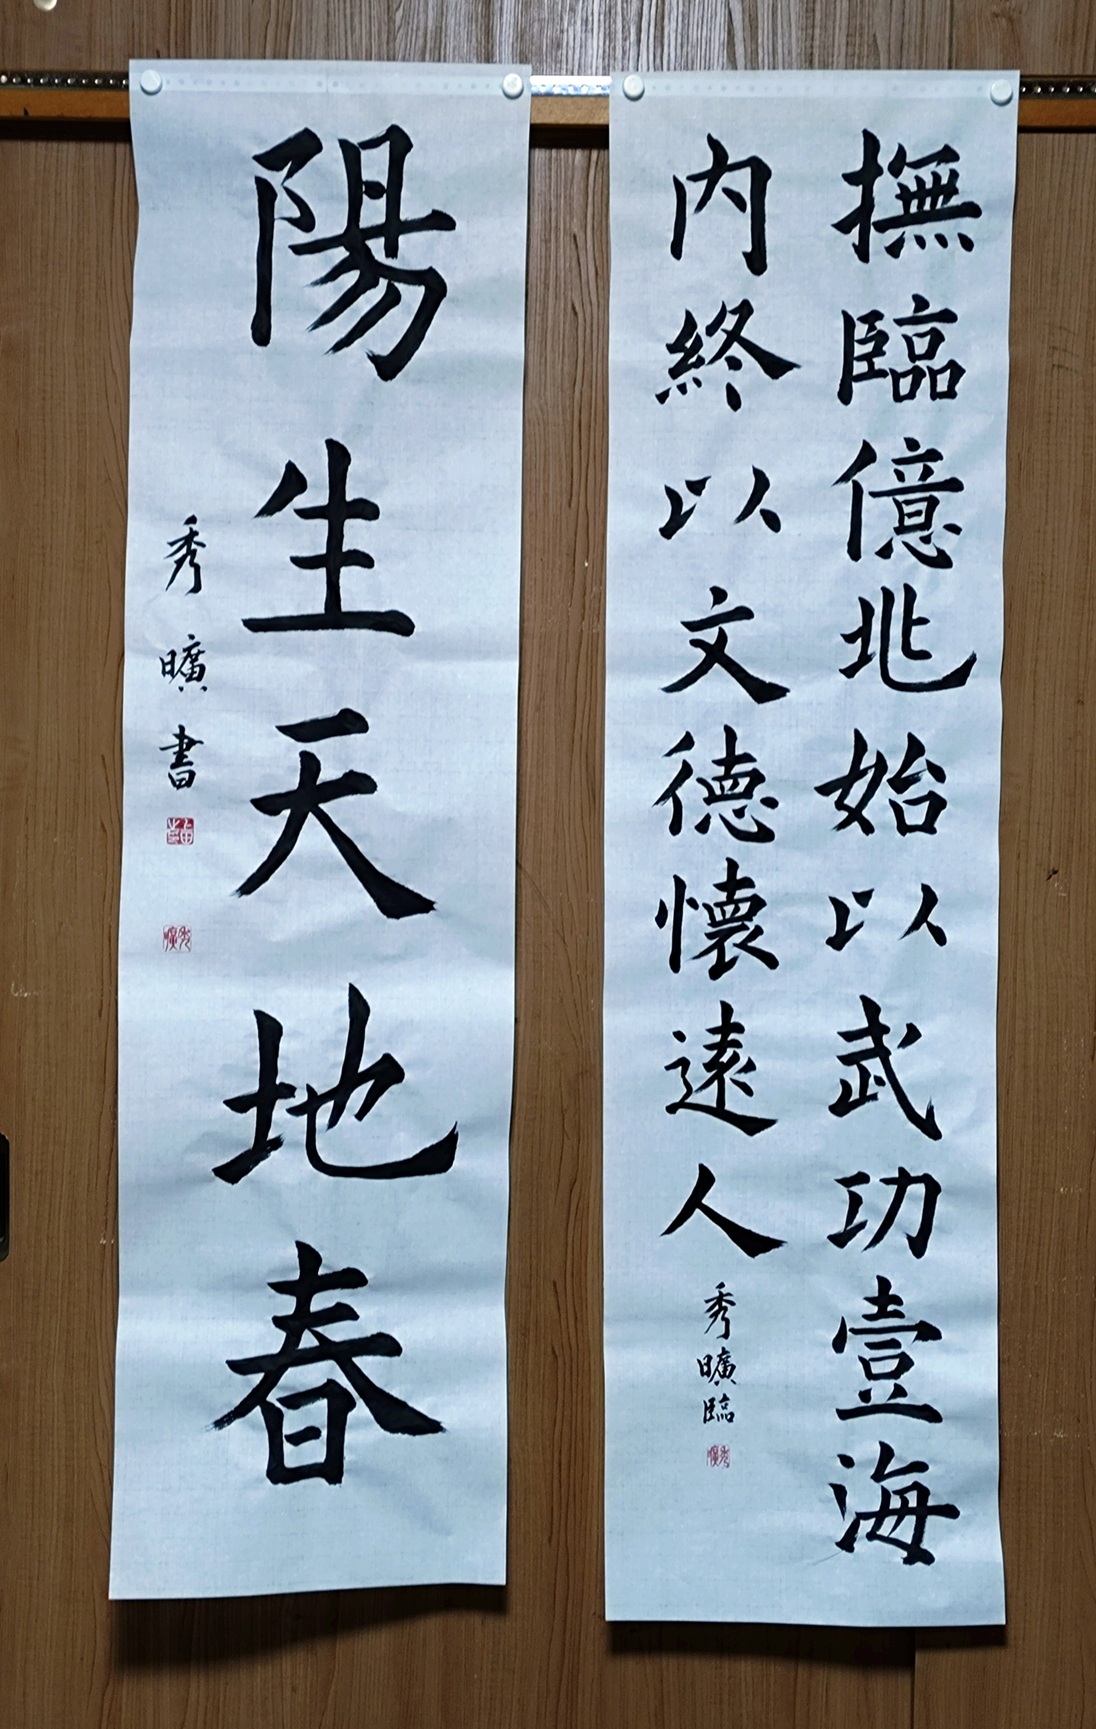 撫臨億兆始以武功壹海
内終以文徳懷遠人
秀曠臨
陽生天地春
秀曠書